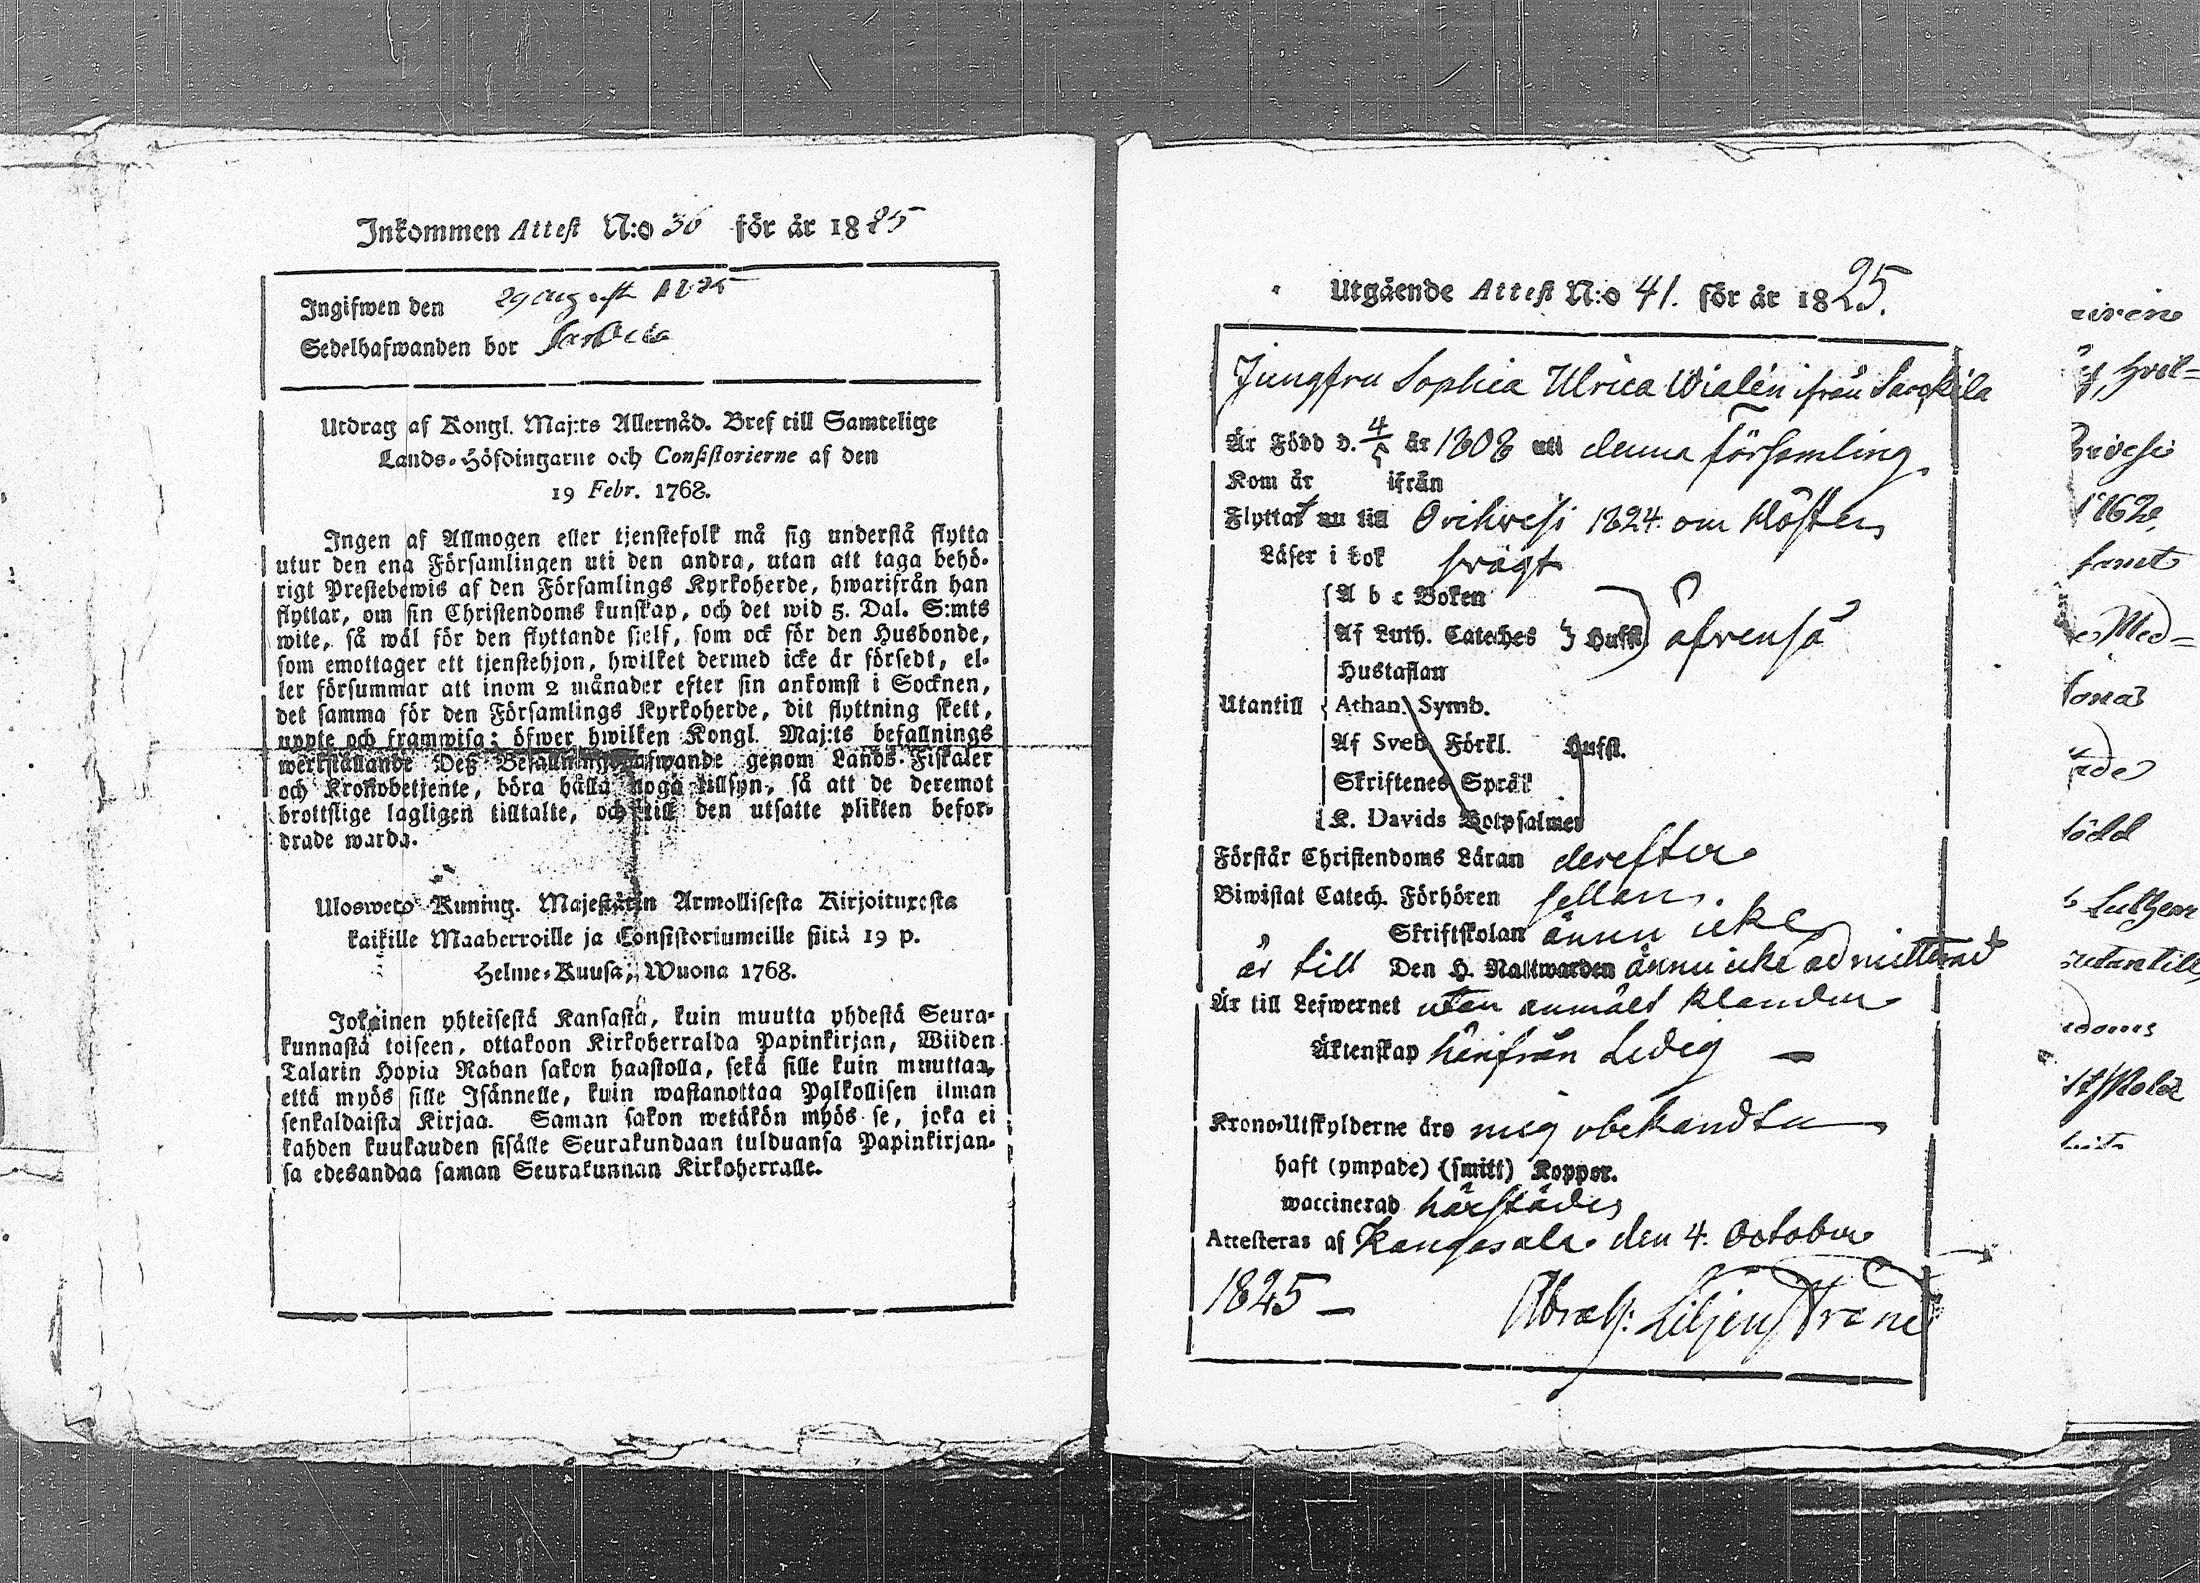 Inkommen Attest N:o 36 för år 1825
Ingifwen den 29 August 1825
Sedelhafwanden bor
Utdrag af Kongl. Maj:ts Allernåd. Bref till Samtelige
Lands-Höfdingarne och Consistorierne af den
19 Febr. 1768.
Ingen af Allmogen eller tjenstefolk må sig understå flytta
utur den ena Församlingen uti den andra, utan att taga behö-
rigt Prestebewis af den Församlings Kyrkoherde, hwarifrån han
flyttar, om sin Christendoms kunskap, och det wid 5. Dal. S:mts
wite, så wäl för den flyttande sjelf, som ock för den Husbonde,
som emottager ett tjenstehjon, hwilket dermed icke är försedt, el-
ler försummar att inom 2 månader efter sin ankomst i Socknen,
det samma för den Församlings Kyrkoherde, dit flyttning skett,
uppte och framwisa; öfwer hwilken Kongl. Maj:ts befallnings
werkställande Deß Befallningshafwande genom Lands-Fiskaler
och Kronobetjente, böra hålla noga tillsyn, så att de deremot
brottslige lagligen tilltalte, och till den utsatte plikten befor-
drade warda.
Ulosweto Kuning. Majestätin Armollisesta Kirjoituxesta
kaikille Maaherroille ja Consistoriumeille siitä 19 p.
Helme-Kuusa, Wuona 1768.
Jokainen yhteisestä Kansasta, kuin muutta yhdestä Seura-
kunnastä toiseen, ottakoon Kirkoherralda Papinkirjan, Wiiden
Talarin Hopia Rahan sakon haastolla, sekä sille kuin muuttaa,
että myös sille Isännelle, kuin wastanottaa Palkollisen ilman
senkaldaista Kirjaa. Saman sakon wetäkön myös se, joka ei
kahden kuukauden sisälle Seurakundaan tulduansa Papinkirjan-
sa edesandaa saman Seurakunnan Kirkoherralle.
Utgående Attest N:o 41. för år 1825.
Jungfru Sophia Ulrica Wialén ifrån Sarkila
Är Född d. 4/5 år 1808 uti denna församling
Kom år ifrån
Flyttat nu till Orihvesi 1824 om Hösten
Läser i bok svagt
A b c Boken
Af Luth. Cateches Hufst. äfvenså
Hustaflan
Utantill Athan. Symb.
Af Sveb. Förkl. Hufst.
Skriftenes Språk
K. Davids Botpsalmer
Förstår Christendoms Läran derefter
Biwistat Catech. Förhören sellan.
Skriftskolan ännu icke
är till Den H. Nattwarden ännu icke admitterad
Är till Lefwernet utan anmält klander
Äktenskap härifrån Ledig —
Krono-Utskylderne äro mig obekandta
haft (ympade) (smitt) Koppor.
waccinerad härstädes
Attesteras af Kangasala den 4. October
1825 —
Abrah: Liljenstrand
ifrån
Hvil-
1862,
Med-
född
Luthers
utantill,